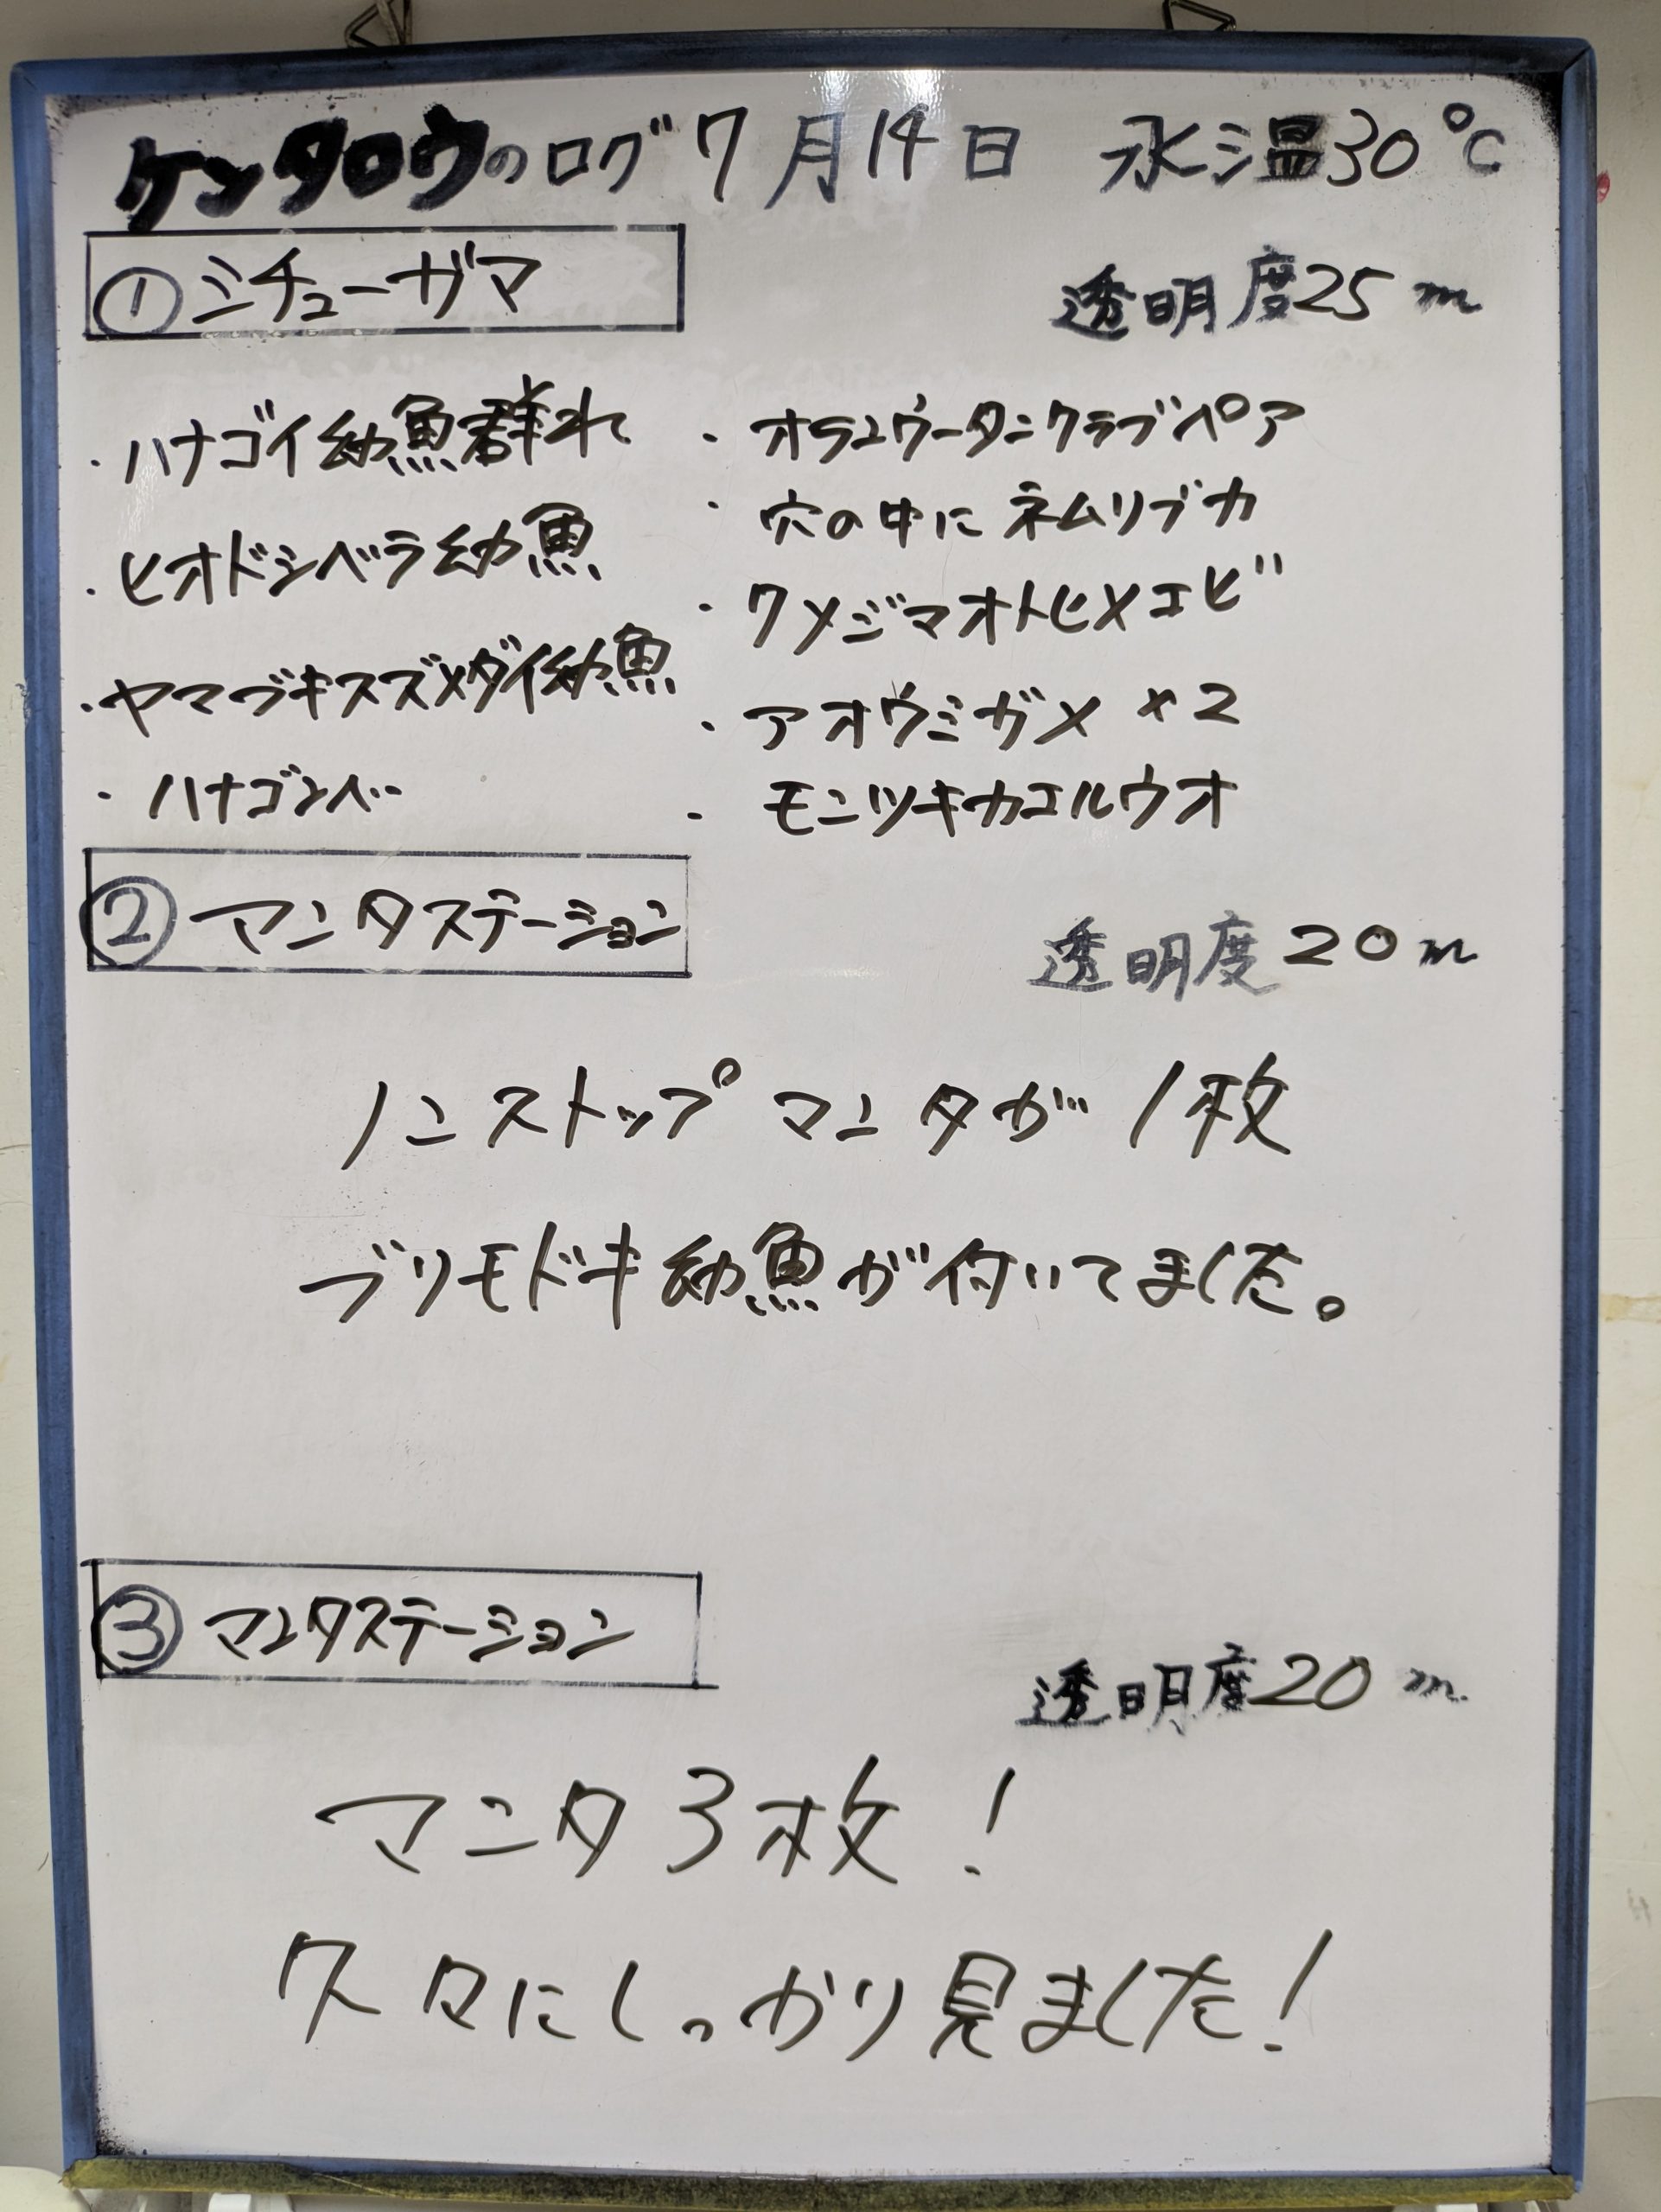 ケンタロウのログ 7月14日 水温30℃
①ミチューガマ
透明度25m
・ハナゴイ幼魚群れ
・ヒオドシベラ幼魚
・ヤマブキスズメダイ幼魚
・ハナゴンベ
・オランウータンクラブペア
・穴の中にネムリブカ
・クメジマオトヒメエビ
・アオウミガメ ×2
・モンツキカエルウオ
②マンタステーション
透明度20m
ノンストップマンタが1枚
ブリモドキ幼魚が付いてました。
③マンタステーション
透明度20m
マンタ3枚!
久々にしっかり見ました!